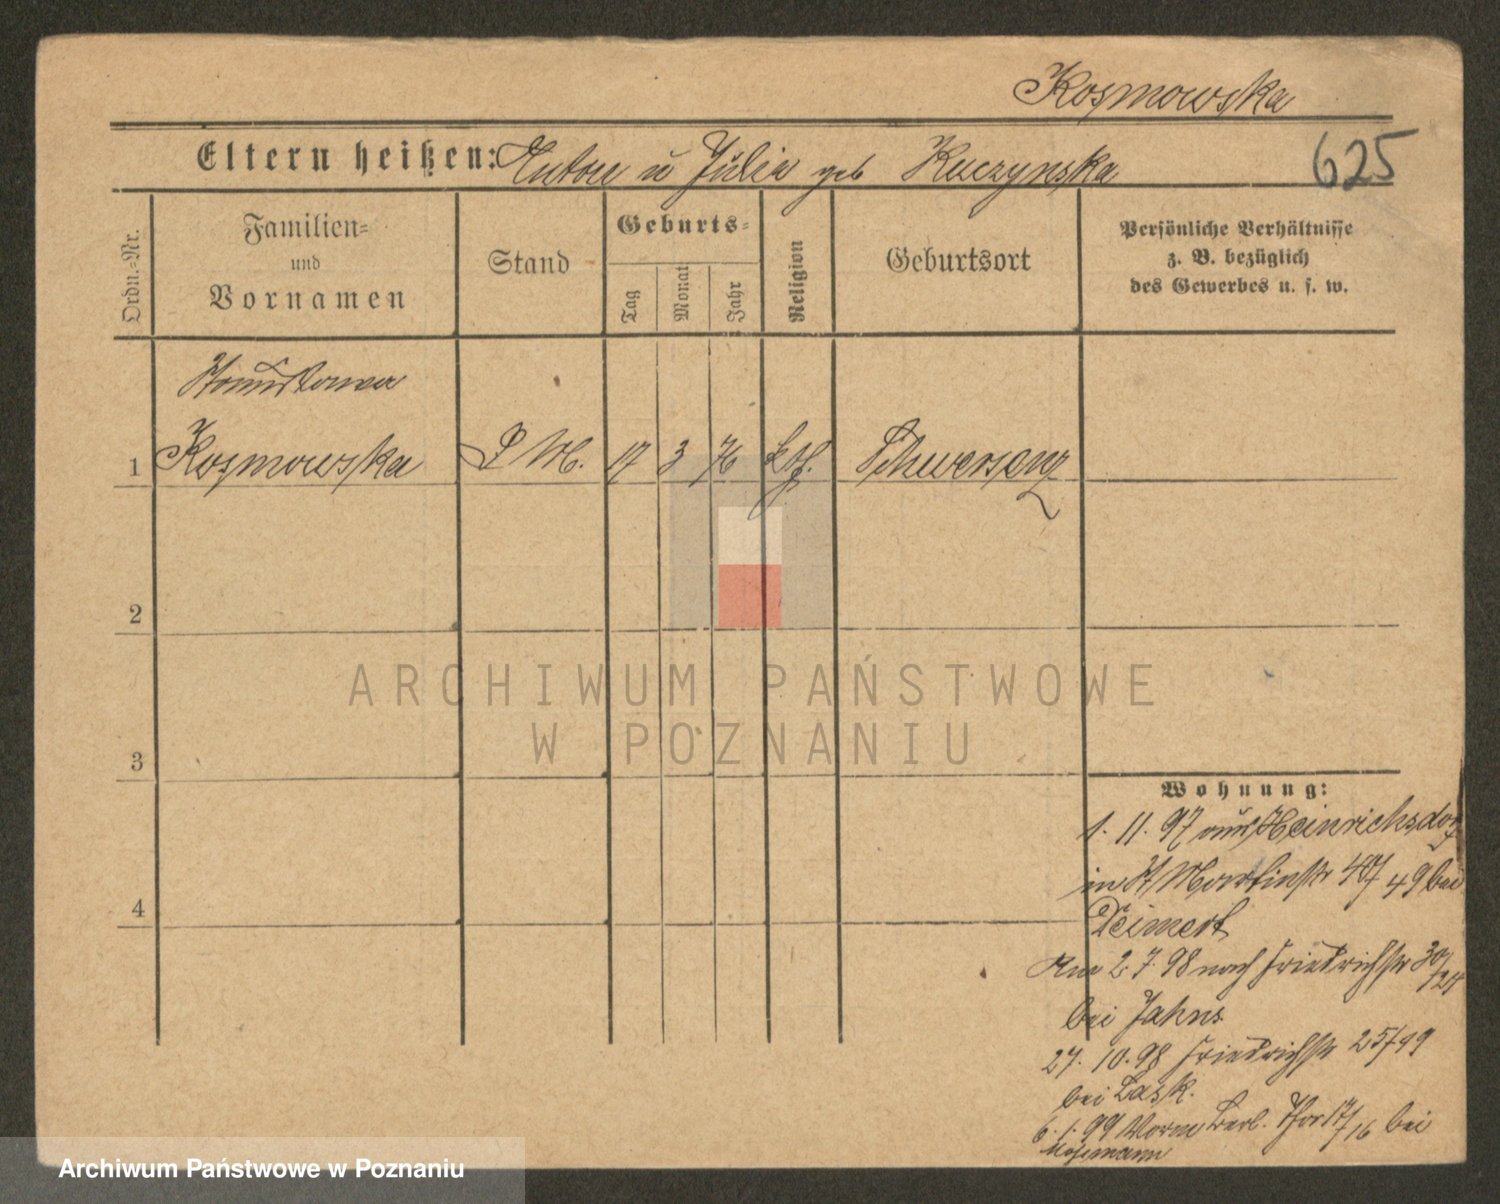 Kosmowska
Eltern heißen: Anton u Julia geb Kuczynska
625
Ordn.-Nr.
Familien- und Vornamen
Stand
Geburts-
Tag
Monat
Jahr
Religion
Geburtsort
Persönliche Verhältnisse
z. B. bezüglich
des Gewerbes u. s. w.
Stanislawa
1 Kosmowska D M. 17 3 76 kth. Schwersenz
2
ARCHIWUM PAŃSTWOWE
W POZNANIU
3
Wohnung:
1. 11. 97 aus Heinrichsdorf
in St Martinstr 40/49 bei
4
Deimert
Am 2. 7. 98 nach Friedrichstr 30/24
bei Jahns
27. 10. 98 Friedrichstr 25/49
bei Lask.
6. 1. 99 Vorm Berl. Thor 17/16 bei
Archiwum Państwowe w Poznaniu